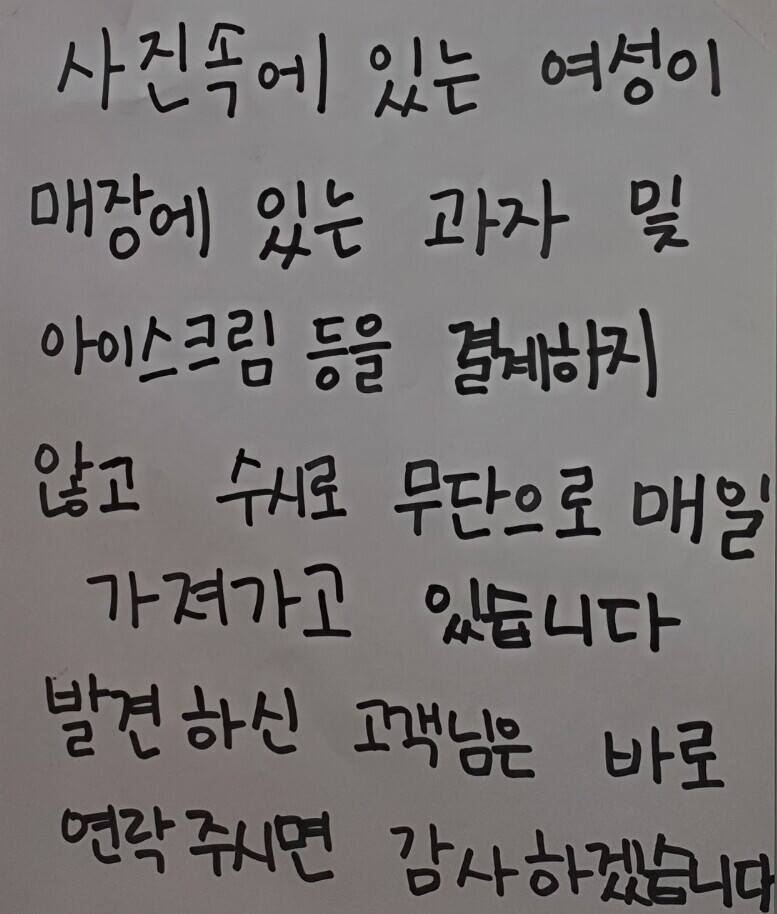 사진속에 있는 여성이
매장에 있는 과자 및
아이스크림 등을 결제하지
않고 수시로 무단으로 매일
가져가고 있습니다
발견하신 고객님은 바로
연락주시면 감사하겠습니다